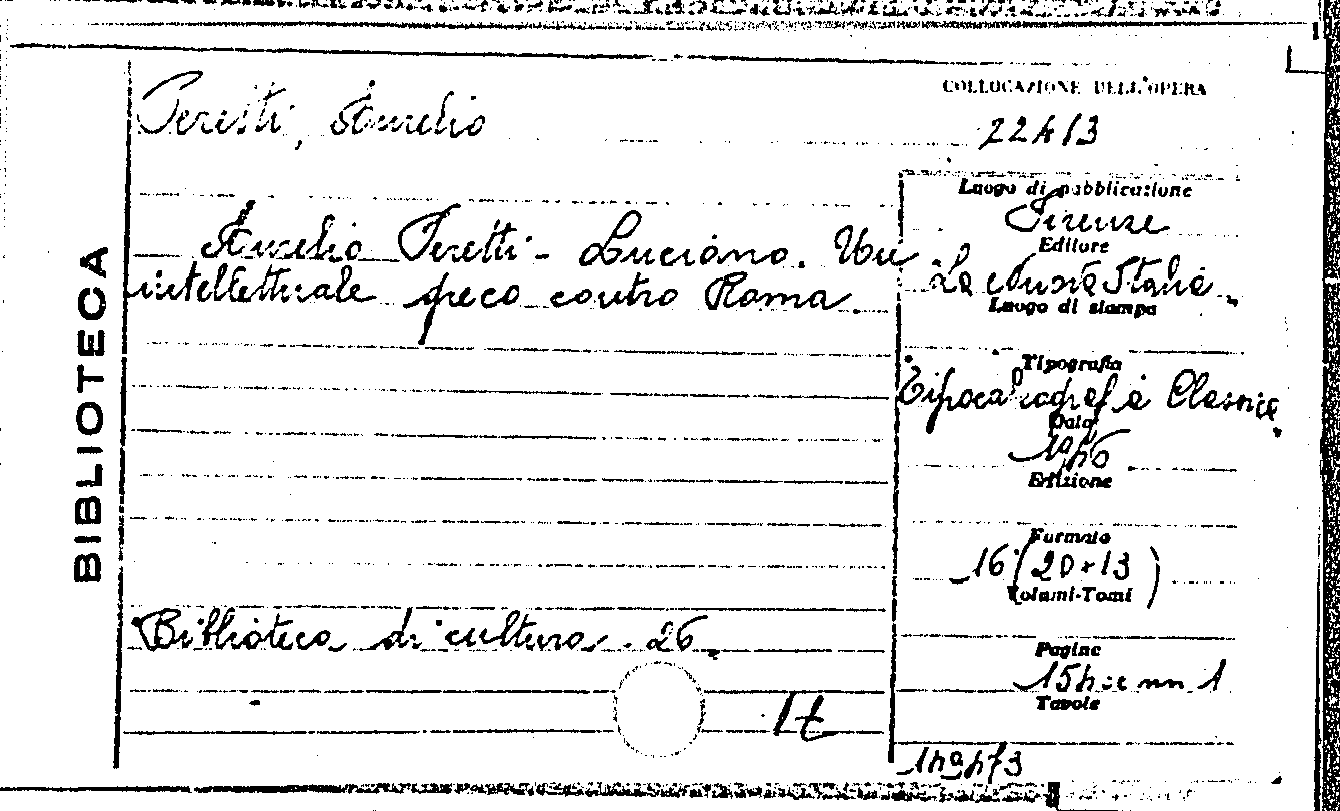 BIBLIOTECA
COLLOCAZIONE DELL'OPERA
Peretti, Aurelio
Luogo di pubblicazione
Firenze
Aurelio Peretti - Luciano. Un
intellettuale greco contro Roma.
Editore
La Nuova Italia
Luogo di stampa
Tipografia
Tipocalcografia Classica
Data
1946
Edizione
Formato
16 (20×13)
Volumi-Tomi
Biblioteca di cultura. 26.
Pagine
154 e nn 1
Tavole
It
149473